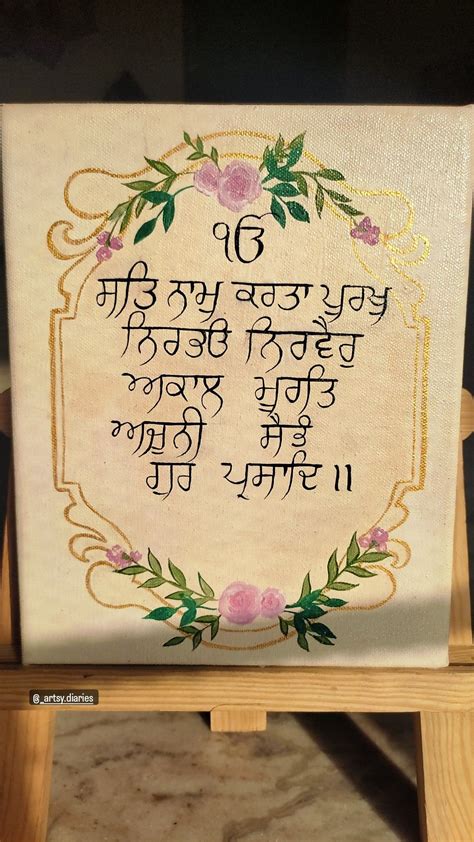 ੴ
ਸਤਿ ਨਾਮੁ ਕਰਤਾ ਪੁਰਖੁ
ਨਿਰਭਓ ਨਿਰਵੈਰੁ
ਅਕਾਲ ਮੂਰਤਿ
ਅਜੂਨੀ ਸੈਭੰ
ਗੁਰ ਪ੍ਰਸਾਦਿ ॥
@_artsy.diaries